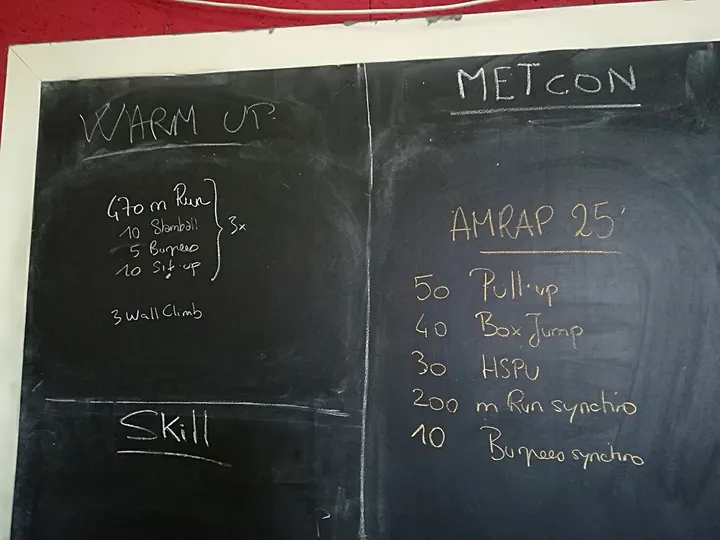 WARM UP
470 m Run
10 Slamball
5 Burpees
10 Sit-up
3x
3 Wall Climb
Skill
METCON
AMRAP 25'
50 Pull-up
40 Box Jump
30 HSPU
200 m Run synchro
10 Burpees synchro